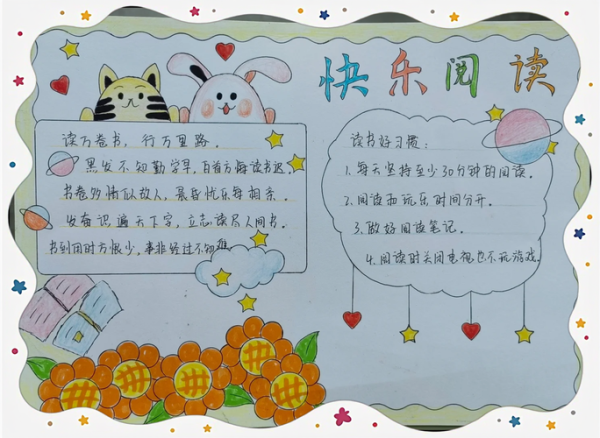 快乐阅读
读万卷书，行万里路。
黑发不知勤学早，白首方悔读书迟。
书卷多情似故人，晨昏忧乐每相亲。
发奋识遍天下字，立志读尽人间书。
书到用时方恨少，事非经过不知难
读书好习惯：
1.每天坚持至少30分钟的阅读。
2.阅读和玩乐时间分开。
3.做好阅读笔记。
4.阅读时关闭电视也不玩游戏。